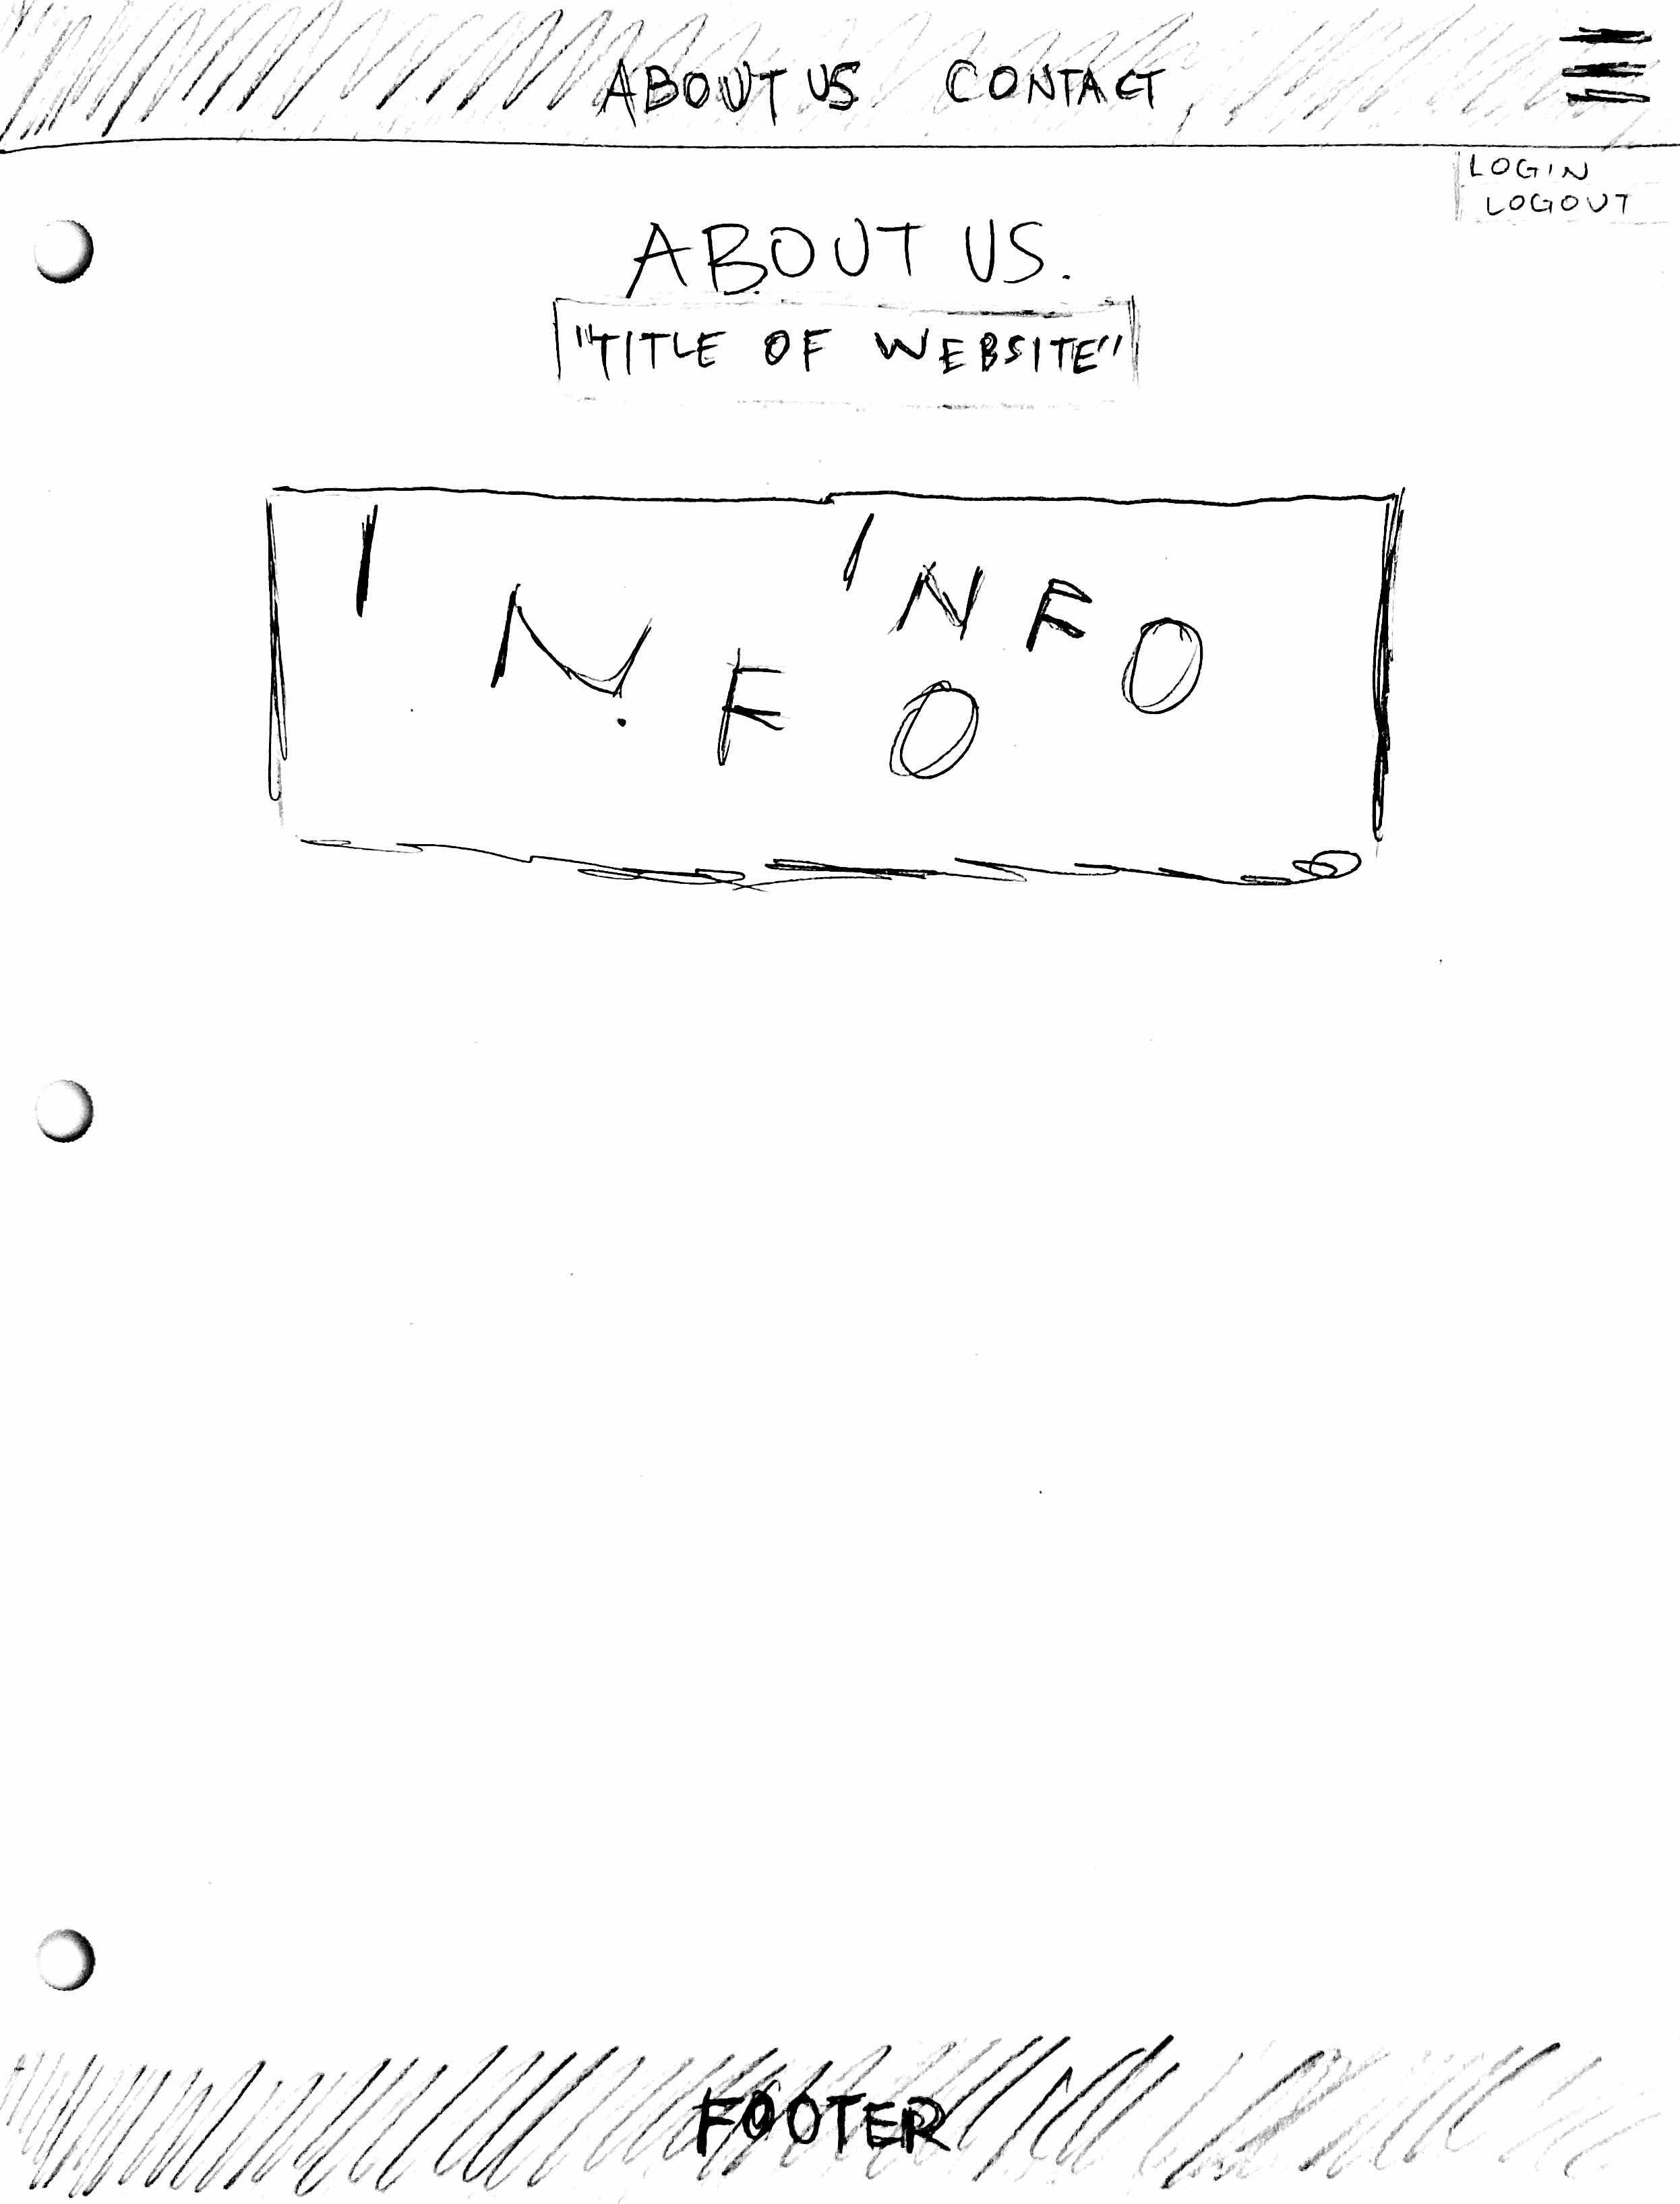 ABOUT US CONTACT
LOGIN
LOGOUT
ABOUT US.
"TITLE OF WEBSITE"
INFO
INFO
FOOTER